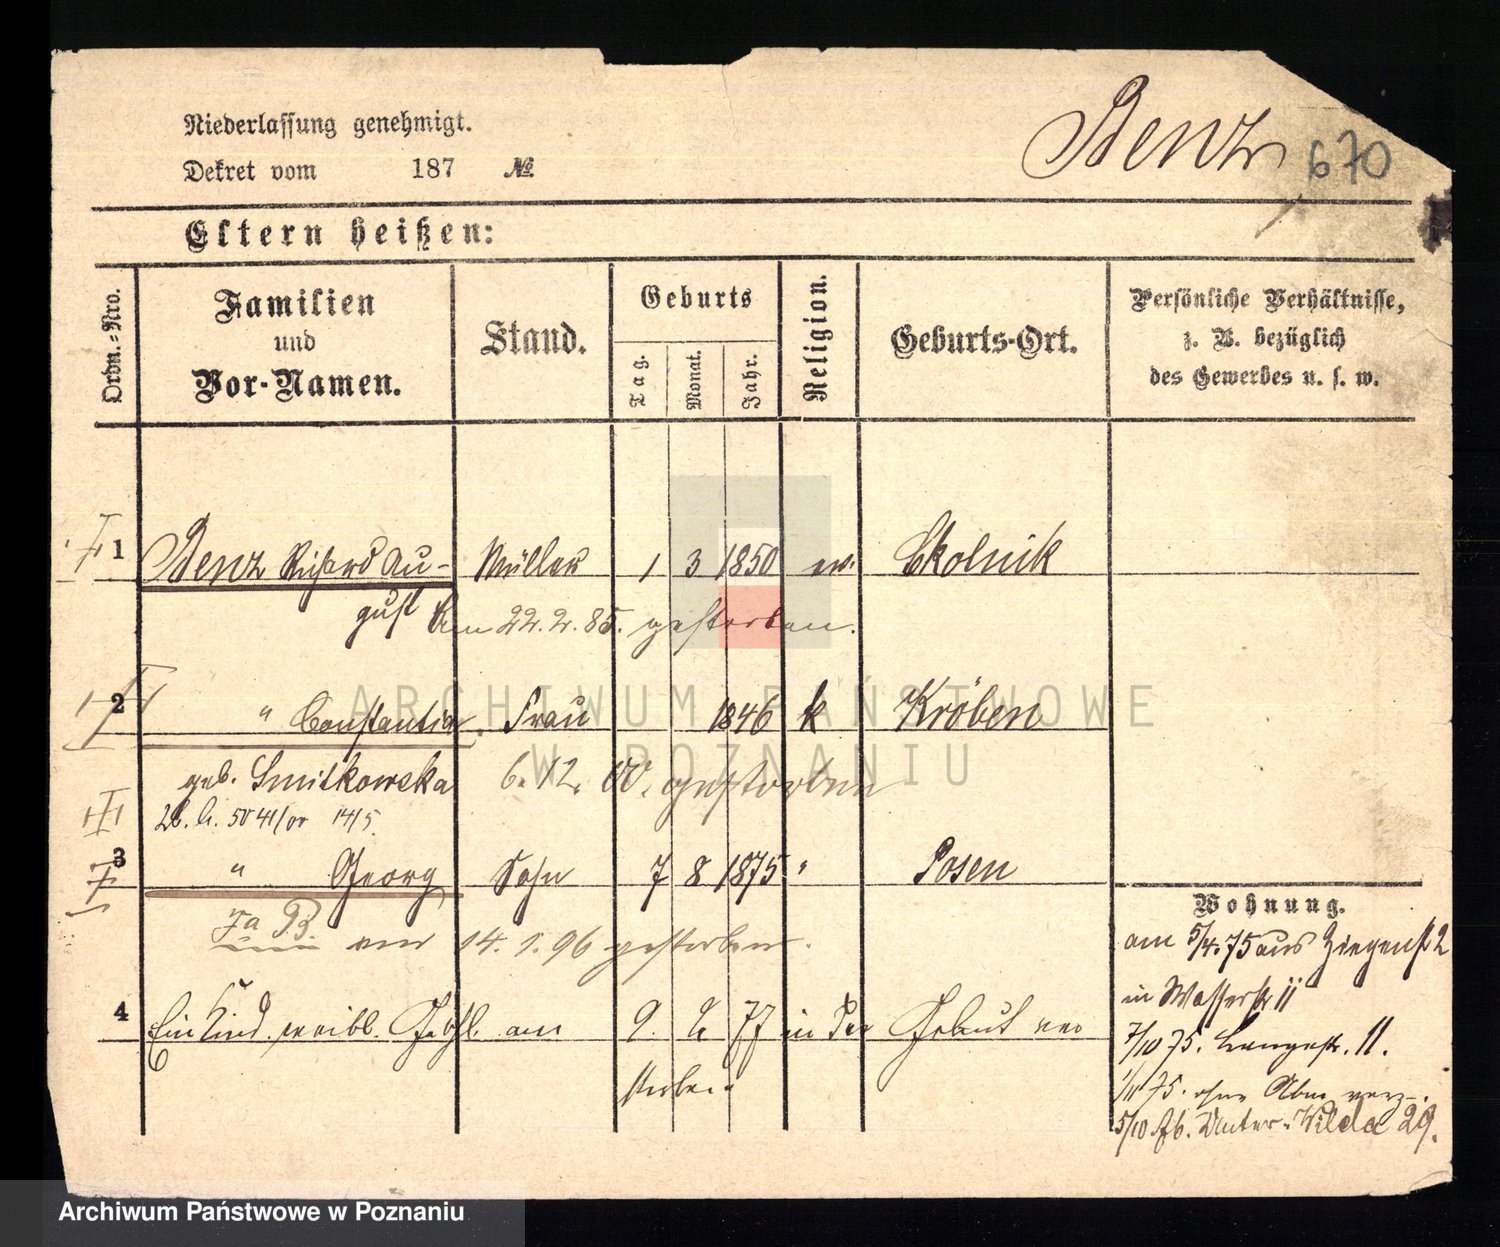 Niederlassung genehmigt.
Dekret vom 187 №
Benz 670
Eltern heißen:
Ordn.-Nro.
Familien
und
Vor-Namen.
Stand.
Geburts
Tag.
Monat.
Jahr.
Religion.
Geburts-Ort.
Persönliche Verhältnisse,
z. B. bezüglich
des Gewerbes u. s. w.
1 Benz Richard Au- Müller 1 3 1850 ev. Ckolnik
gust Am 22.2.85. gestorben.
2 " Constantia Frau 1846 k Kröben
geb. Smitkowska 6.12.00. gestorben
3 " Georg Sohn 7 8 1875 " Posen
am 14.1.96 gestorben.
4 Ein Kind weibl. Geschl. am 9. 2 77 in der Geburt ver
storben.
Wohnung.
am 5/4.75 aus Ziegenst 2
in Wasserstr 11
7/10 75. Langestr. 11.
1/11 75. ohne Abm. verz.
5/10 Unter-Wilda 29.
ARCHIWUM PAŃSTWOWE
W POZNANIU
Archiwum Państwowe w Poznaniu